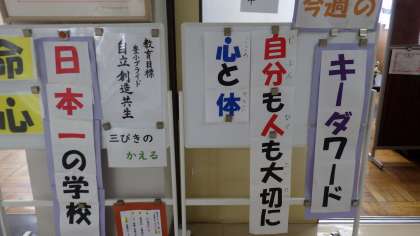 今週の
キーダワード
自分も人も大切に
心と体
教育目標
自立 創造 共生
三びきの
かえる
日本一の学校
命
心